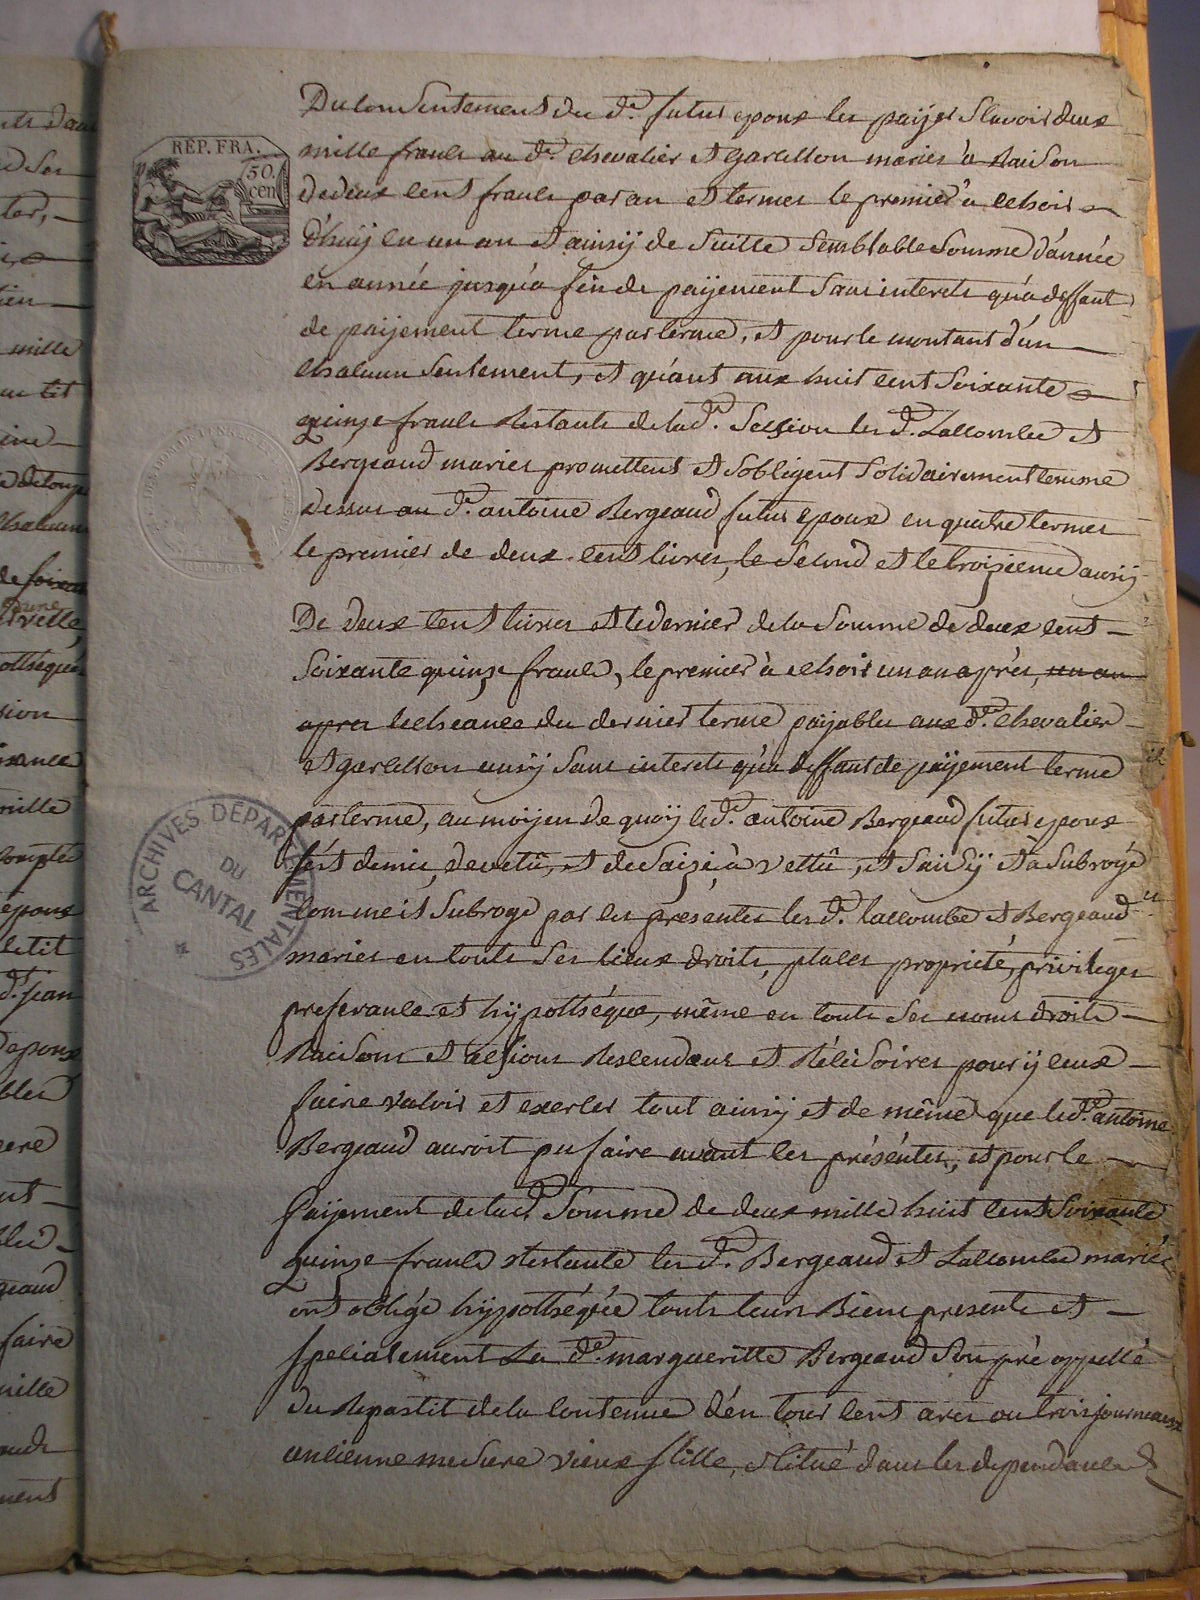 REP. FRA.
50.
cen
Du consentement du d.t futur epoux les paijer scavoir deux
mille francs au d.t chevalier et garcellon mariés à Raison
de deux cent francs par an et termes le premier à echoir
d'huij en un an et ainsij de suitte semblable somme d'année
en année jusqu'a fin de paijement sans interets qu'a deffaut
de paijement terme par terme, et pour le montant d'un
chacun seulement, et quant aux huit cent soixante
quinze francs Restants de lad.e session les d.ts Laccombe et
Bergeaud mariés promettent et s'obligent solidairement comme
dessus au d.t antoine Bergeaud futur epoux en quatre termes
le premier de deux cent livres, le second et le troizieme aussij
De deux cent livres et le dernier de la somme de deux cent
soixante quinze francs, le premier à echoir un an après, un an
apres lecheance du dernier terme paijable aux d.ts chevalier
et garcellon aussij sans interets qu'a deffaut de paijement terme
par terme, au moijen de quoij le d.t antoine Bergeaud futur epoux
s'est demis, devetû, et desaizi à vettû, et saisij et a subrogé
comme il subroge par les présentes les d.ts laccombe et Bergeaud
mariés en touts ses lieux droits, places propriété, privileges
preferance et hijpothéque, même en touts ses noms droits
Raisons et actions Rescendans et Rélésoires pour ij ceux
faire valoir et exercer tout ainsij et de même que le d.t antoine
Bergeaud auroit pu faire avant les présentes, et pour le
Paijement de lad.e somme de deux mille huit cent soixante
quinze francs Restante les d.ts Bergeaud et Laccombe mariés
ont obligé hijpothéqée touts leurs Biens presents et
specialement La d.e margueritte Bergeaud son pré appellé
du Repastit de la contenue d'en tour cent ares ou trois journeaux
ancienne mesure vieux stille, situé dans les dependances
ARCHIVES DÉPARTEMENTALES
DU
CANTAL